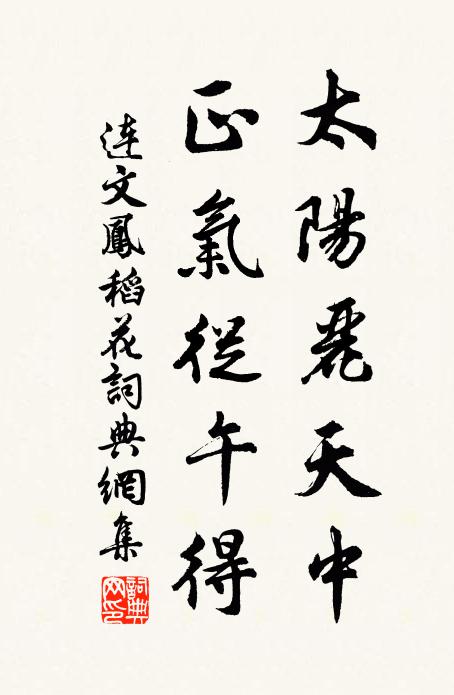 太陽麗天中
正氣從午得
連文鳳稻花詞典網集
詞典網印